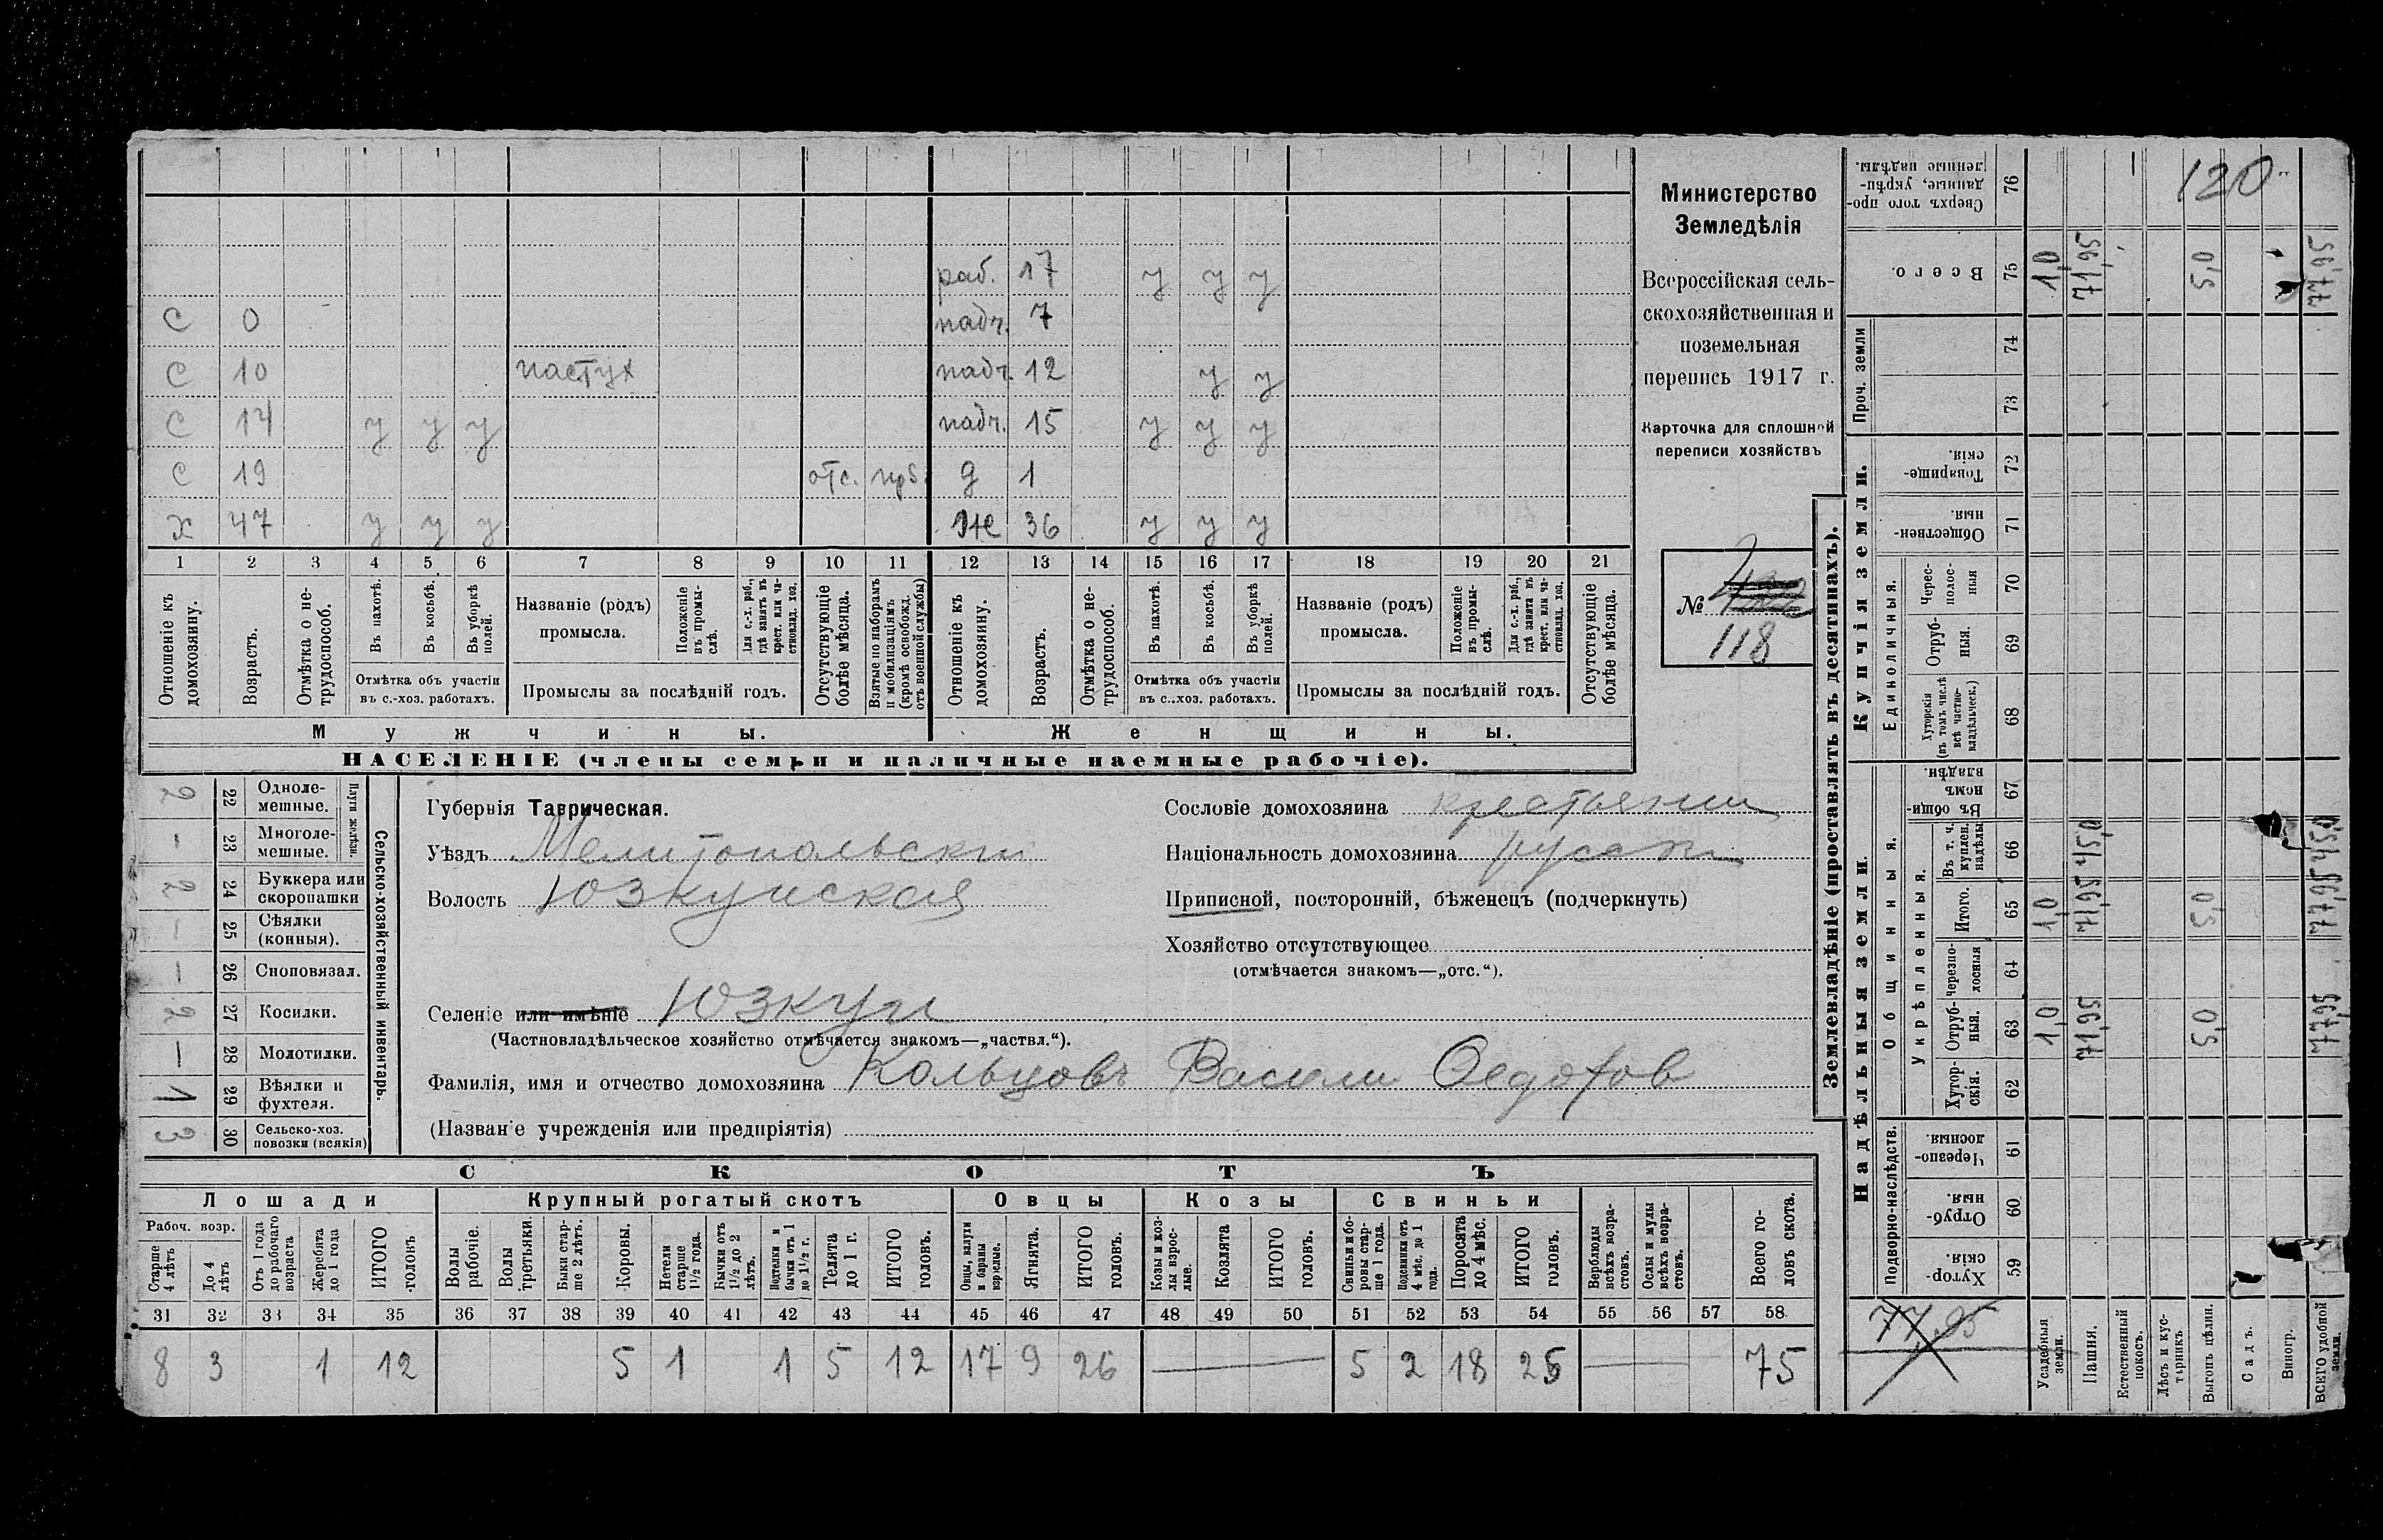 раб. 17 у у у
с 0 падч. 7
с 10 пастух падч. 12 у у
с 14 у у у падч. 15 у у у
с 19 отс. д 1
х 47 у у у же 36 у у у
1 2 3 4 5 6 7 8 9 10 11 12 13 14 15 16 17 18 19 20 21
Отношеніе къ домохозяину.
Возрастъ.
Отмѣтка о нетрудоспособ.
Въ пахотѣ.
Въ косьбѣ.
Въ уборкѣ полей.
Отмѣтка объ участіи
въ с.-хоз. работахъ.
Названіе (родъ)
промысла.
Положеніе въ промыслѣ.
Для с.-х. раб., гдѣ занятъ въ крест. или частновлад. хоз.
Промыслы за послѣдній годъ.
Отсутствующіе болѣе мѣсяца.
Взятые по наборамъ и мобилизаціямъ (кромѣ освобожд. отъ военной службы)
Отношеніе къ домохозяину.
Возрастъ.
Отмѣтка о нетрудоспособ.
Въ пахотѣ.
Въ косьбѣ.
Въ уборкѣ полей.
Отмѣтка объ участіи
въ с.-хоз. работахъ.
Названіе (родъ)
промысла.
Положеніе въ промыслѣ.
Для с.-х. раб., гдѣ занята въ крест. или частновлад. хоз.
Промыслы за послѣдній годъ.
Отсутствующіе болѣе мѣсяца.
Мужчины. Женщины.
НАСЕЛЕНІЕ (члены семьи и наличные наемные рабочіе).
Министерство
Земледѣлія
Всероссійская сель-
скохозяйственная и
поземельная
перепись 1917 г.
Карточка для сплошной
переписи хозяйствъ
№
118
Сельско-хозяйственный инвентарь.
Плуги желѣзн.
2 22 Одноле-
мешные.
— 23 Многоле-
мешные.
2 24 Буккера или
скоропашки
— 25 Сѣялки
(конныя).
— 26 Сноповязал.
2 27 Косилки.
— 28 Молотилки.
1 29 Вѣялки и
фухтеля.
3 30 Сельско-хоз.
повозки (всякія)
Губернія Таврическая.
Уѣздъ Мелитопольскій
Волость Юзкуйская
Селеніе или имѣніе Юзкуи
(Частновладѣльческое хозяйство отмѣчается знакомъ—„частвл.“).
Фамилія, имя и отчество домохозяина Кольцовъ Васили Федотов
(Названіе учрежденія или предпріятія)
Сословіе домохозяина крестьянин
Національность домохозяина русск
Приписной, посторонній, бѣженецъ (подчеркнуть)
Хозяйство отсутствующее
(отмѣчается знакомъ—„отс.“).
СКОТЪ
Лошади Крупный рогатый скотъ Овцы Козы Свиньи
Рабоч. возр.
Старше 4 лѣтъ
До 4 лѣтъ
Отъ 1 года до рабочаго возраста
Жеребята до 1 года
ИТОГО головъ
Волы рабочіе.
Волы третьяки.
Быки старше 2 лѣтъ.
Коровы.
Нетели старше 1½ года.
Бычки отъ 1½ до 2 лѣтъ.
Подтелки и бычки отъ 1 до 1½ г.
Телята до 1 г.
ИТОГО головъ.
Овцы, валухи и бараны взрослые.
Ягнята.
ИТОГО головъ.
Козы и козлы взрослые.
Козлята
ИТОГО головъ.
Свиньи и боровы старше 1 года.
Подсвинки отъ 4 мѣс. до 1 года.
Поросята до 4 мѣс.
ИТОГО головъ.
Верблюды всѣхъ возрастовъ.
Ослы и мулы всѣхъ возрастовъ.
Всего головъ скота.
31 32 33 34 35 36 37 38 39 40 41 42 43 44 45 46 47 48 49 50 51 52 53 54 55 56 57 58
8 3 1 12 5 1 1 5 12 17 9 26 — 5 2 18 25 — 75
Землевладѣніе (проставлять въ десятинахъ).
Надѣльныя земли. Купчія земли. Проч. земли
Подворно-наслѣдств.
Общинныя.
Укрѣпленныя.
Единоличныя.
Хуторскія. 59
Отрубныя. 60
Черезполосныя. 61
Хуторскія. 62
Отрубныя. 63
Черезполосныя 64
Итого. 65
Въ т. ч. куплен. надѣлы 66
Въ общинномъ владѣн. 67
Хуторскія (въ томъ числѣ всѣ частновладѣльческ.) 68
Отрубныя. 69
Черезполосныя 70
Общественныя. 71
Товарищескія. 72
73
74
Всего. 75
Сверхъ того проданные, укрѣпленные надѣлы. 76
77,95
Усадебныя земли. 1,0 1,0 1,0
Пашня. 71,95 71,95 45,0 71,95
Естественный покосъ.
Лѣсъ и кустарникъ
Выгонъ цѣлин. 5,0 5,0 5,0
Садъ.
Виногр.
ВСЕГО удобной земли. 77,95 77,95 45,0 77,95
120